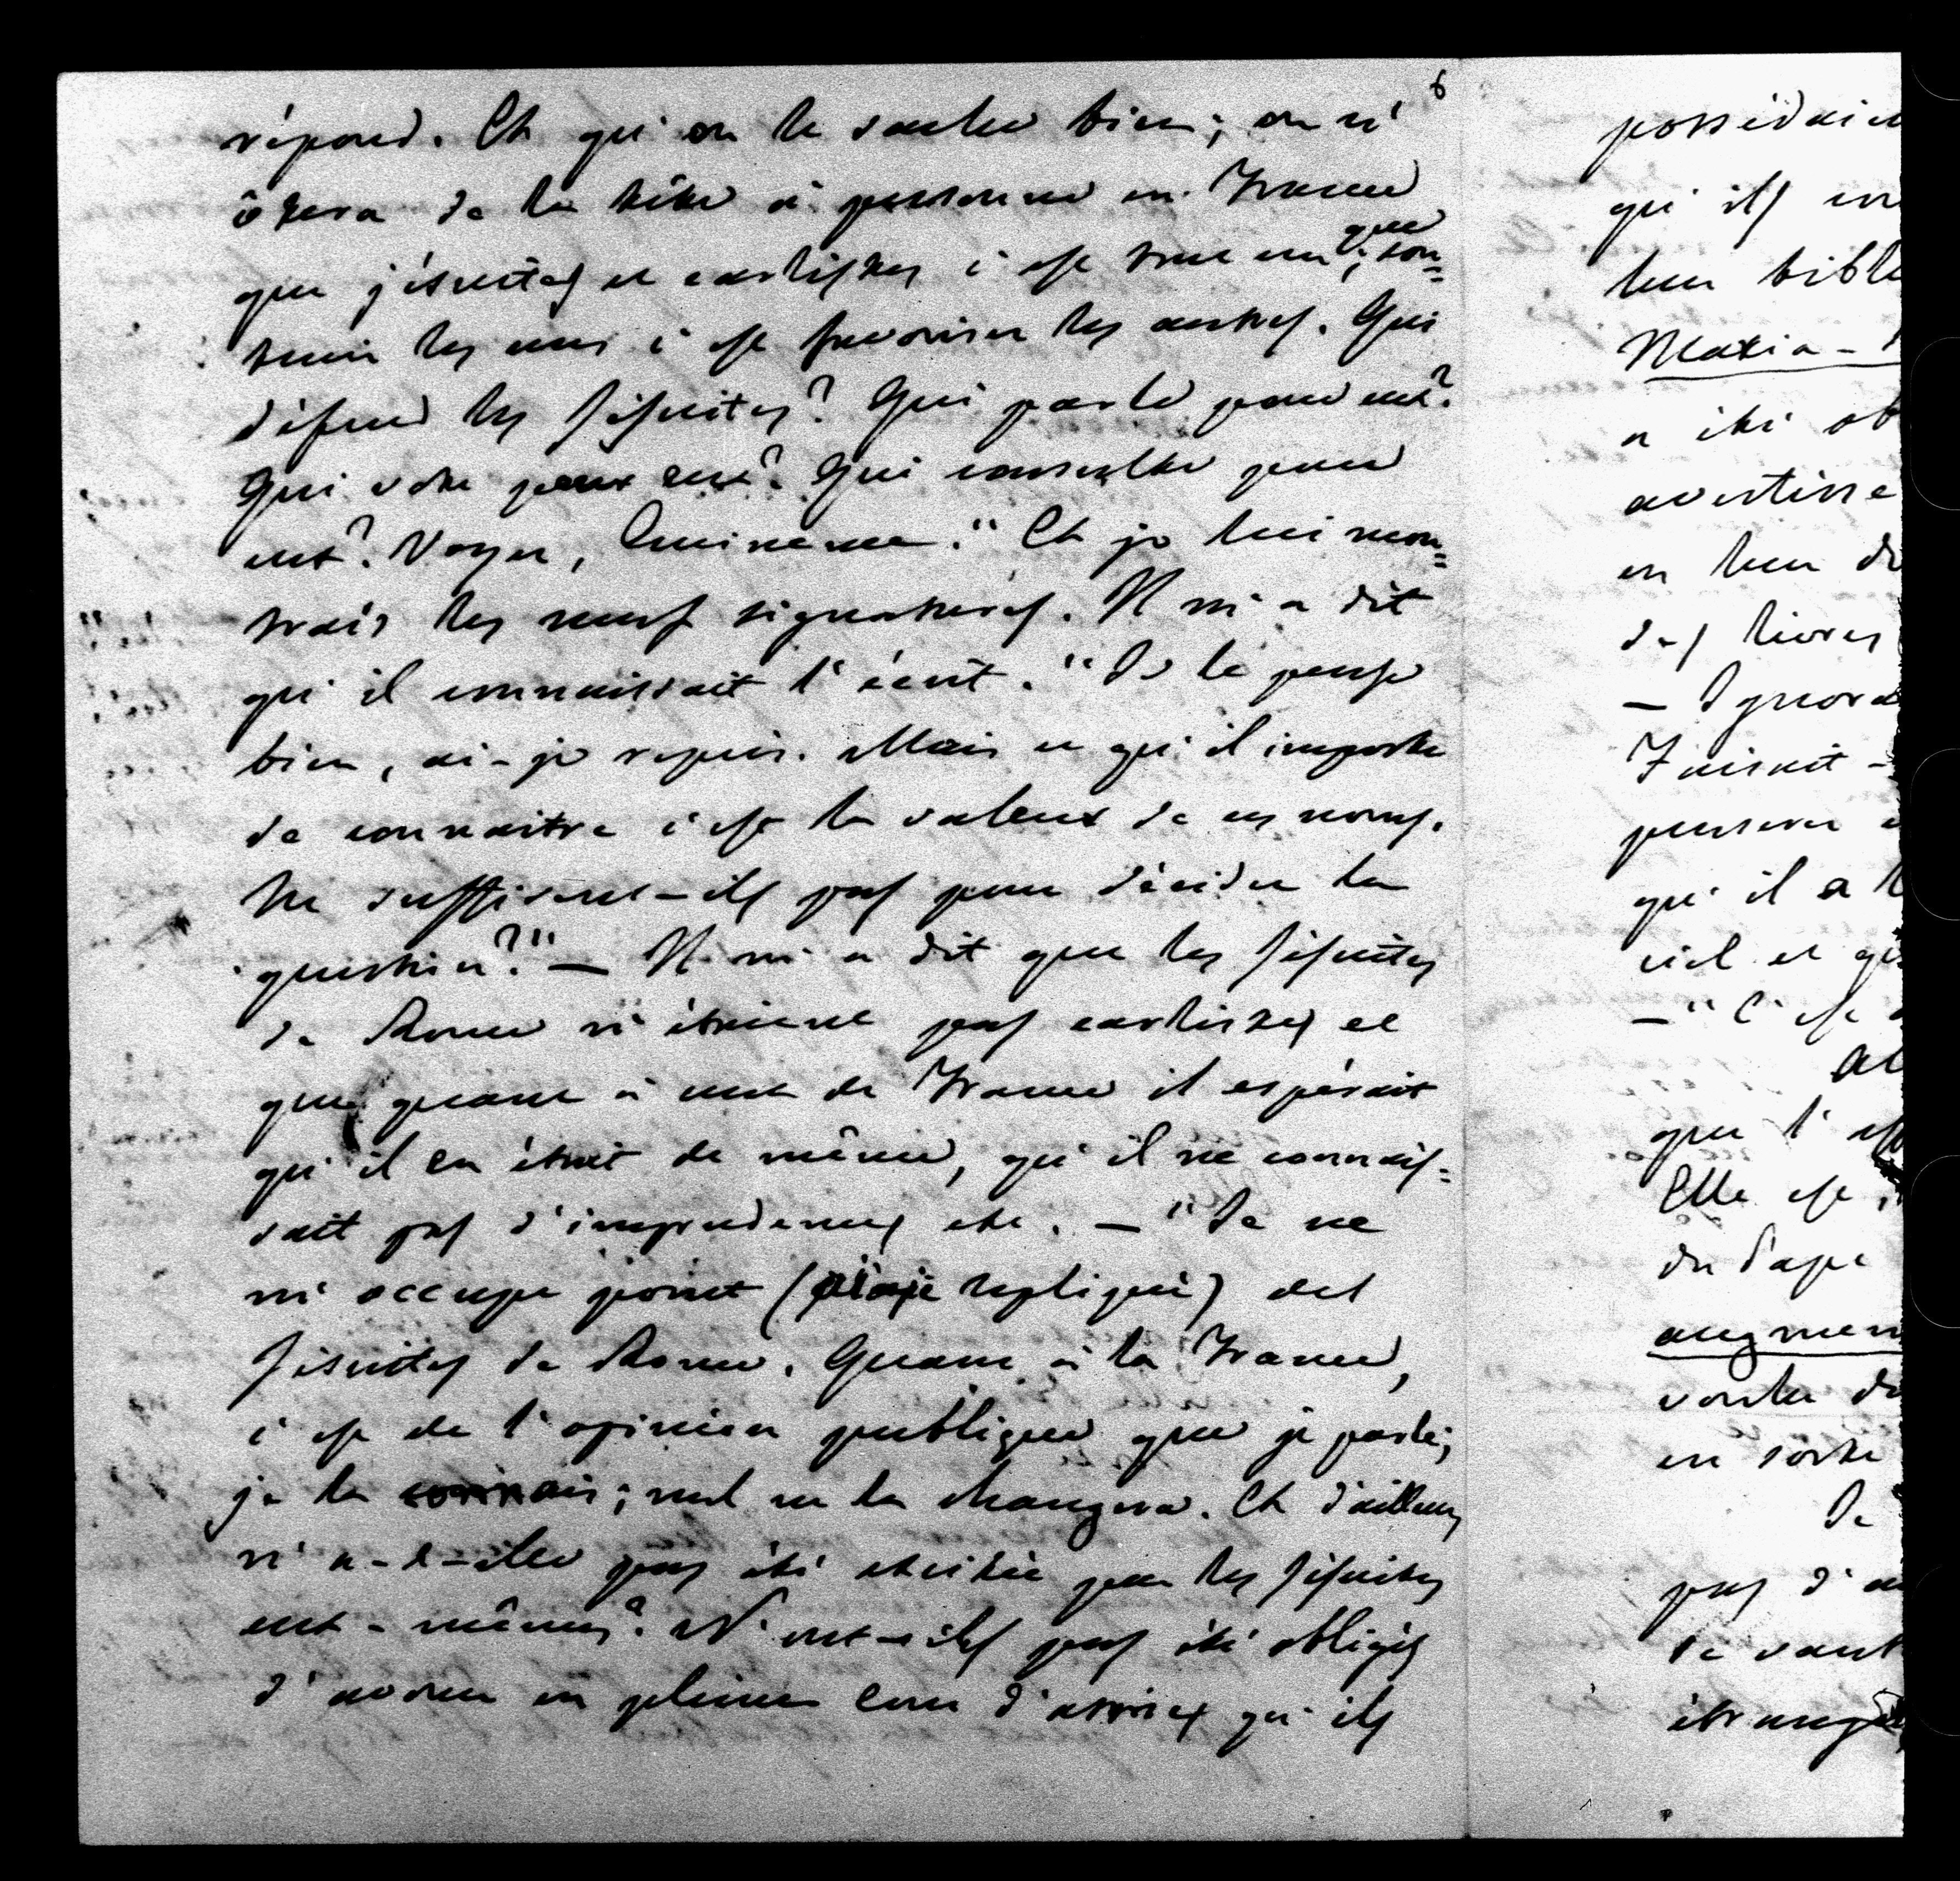 6
répond. Et qu'on le sache bien; on n'
ôtera de la tête à personne en France
que jésuites et carlistes c'est tout un; que sou=
tenir les uns c'est favoriser les autres. Qui
défend les Jésuites? Qui parle pour eux?
Qui vote pour eux? Qui consulte pour
eux? Voyez, Eminence." Et je lui mon=
trais les neuf signatures. Il m'a dit
qu'il connaissait l'écrit. "Je le pense
bien, ai-je repris. Mais ce qu'il importe
de connaitre c'est la valeur de ces noms.
Ne suffisent-ils pas pour décider la
question?" — Il m'a dit que les Jésuites
de Rome n'étaient pas carlistes et
que quant à ceux de France il espérait
qu'il en était de même, qu'il ne connais=
sait pas d'imprudences etc. — "Je ne
m'occupe point (ai-je repliqué) des
Jésuites de Rome. Quant à la France,
c'est de l'opinion publique que je parle;
je la connais; nul ne la changera. Et d'ailleurs
n'a-t-elle pas été excitée par les Jésuites
eux-mêmes? N'ont-ils pas été obligés
d'avouer en pleine cour d'assises qu'ils
possédaien
qu'ils en
leur bibl
Maria-
a été ob
avertisse
en leur d
des livres
— Ignora
Faisait-
penser
qu'il a
ciel et qu
— "C'est
al
que l'
Elle est
du Pape
augmen
voulu d
en sorte
Je
pas d'
se vant
étrang